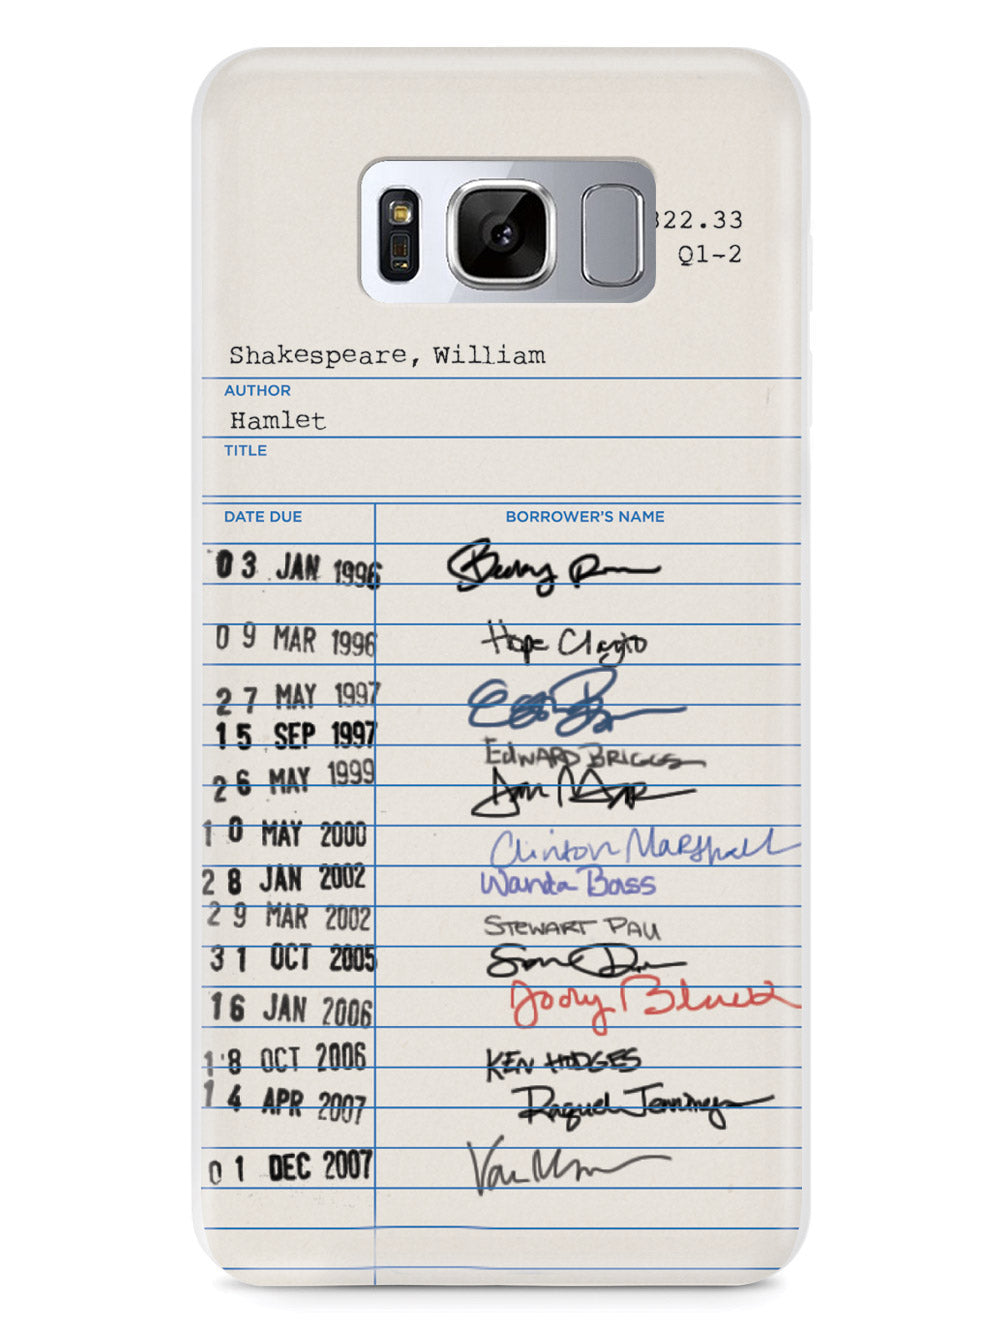 322.33
Q1-2
Shakespeare, William
AUTHOR
Hamlet
TITLE
DATE DUE BORROWER'S NAME
03 JAN 1996
09 MAR 1996 Hope Clayto
27 MAY 1997
15 SEP 1997 EDWARD BRIGGS
26 MAY 1999
10 MAY 2000 Clinton Marshall
28 JAN 2002 Wanda Bass
29 MAR 2002 STEWART PAU
31 OCT 2005
16 JAN 2006 Jody
18 OCT 2006 KEN HODGES
14 APR 2007 Raquel Jennings
01 DEC 2007